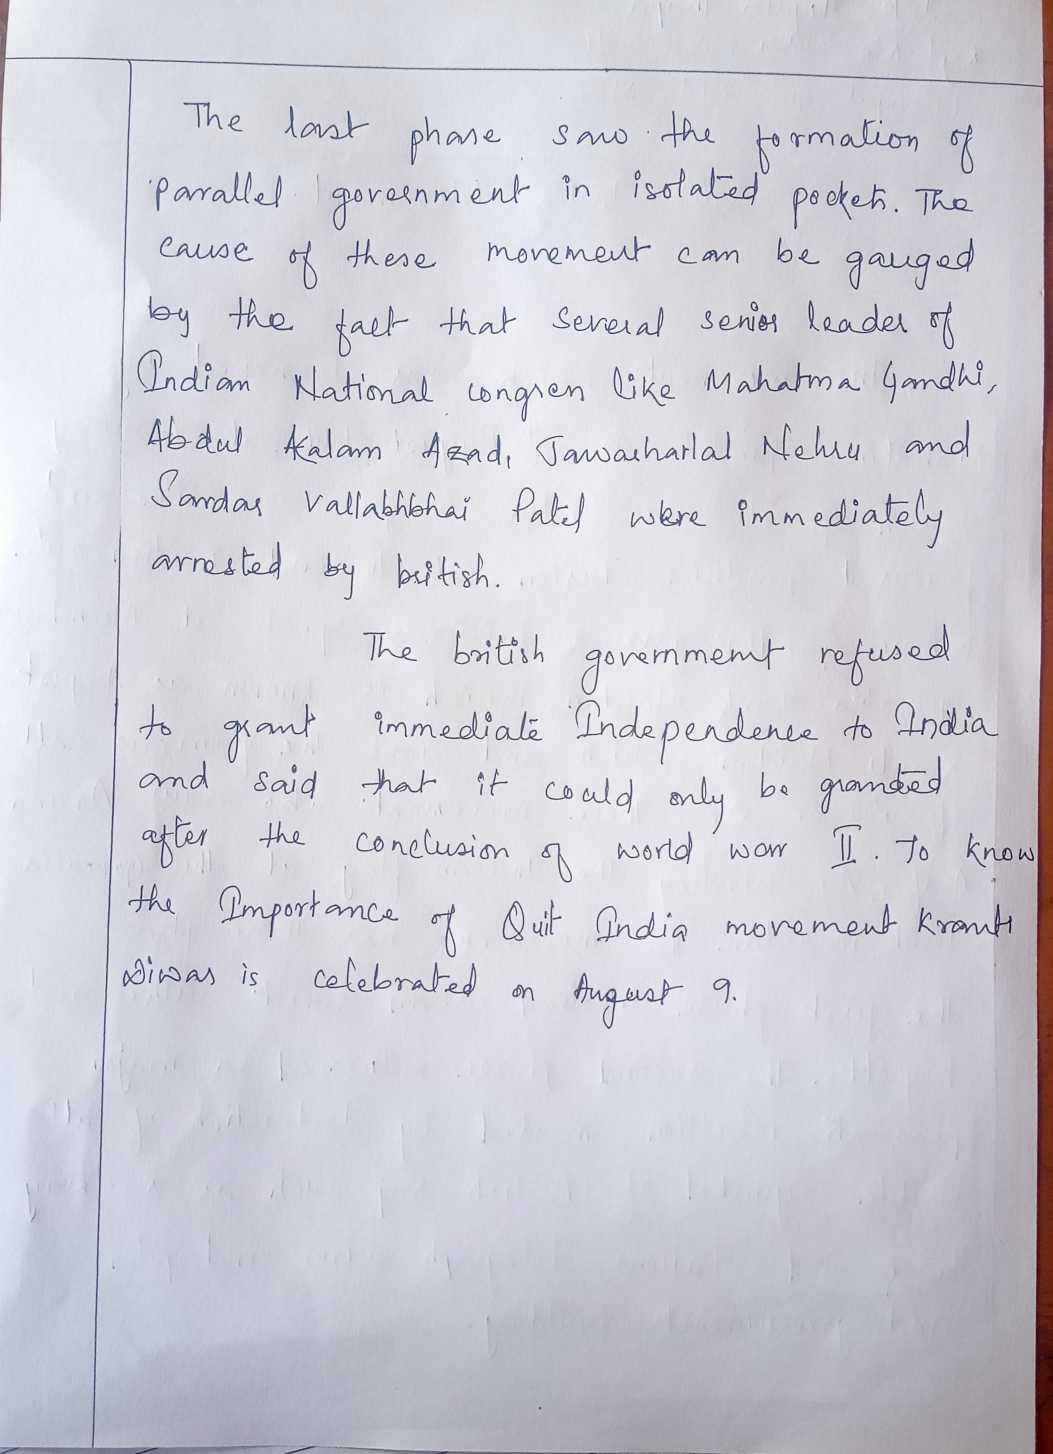 The last phase saw the formation of
parallel government in isolated pockets. The
cause of these movement can be gauged
by the fact that several senior leader of
Indian National congress like Mahatma Gandhi,
Abdul Kalam Azad, Jawaharlal Nehru and
Sardar Vallabhbhai Patel were immediately
arrested by british.
The british government refused
to grant immediate Independence to India
and said that it could only be granted
after the conclusion of world war II. To know
the Importance of Quit India movement Kranti
Diwas is celebrated on August 9.